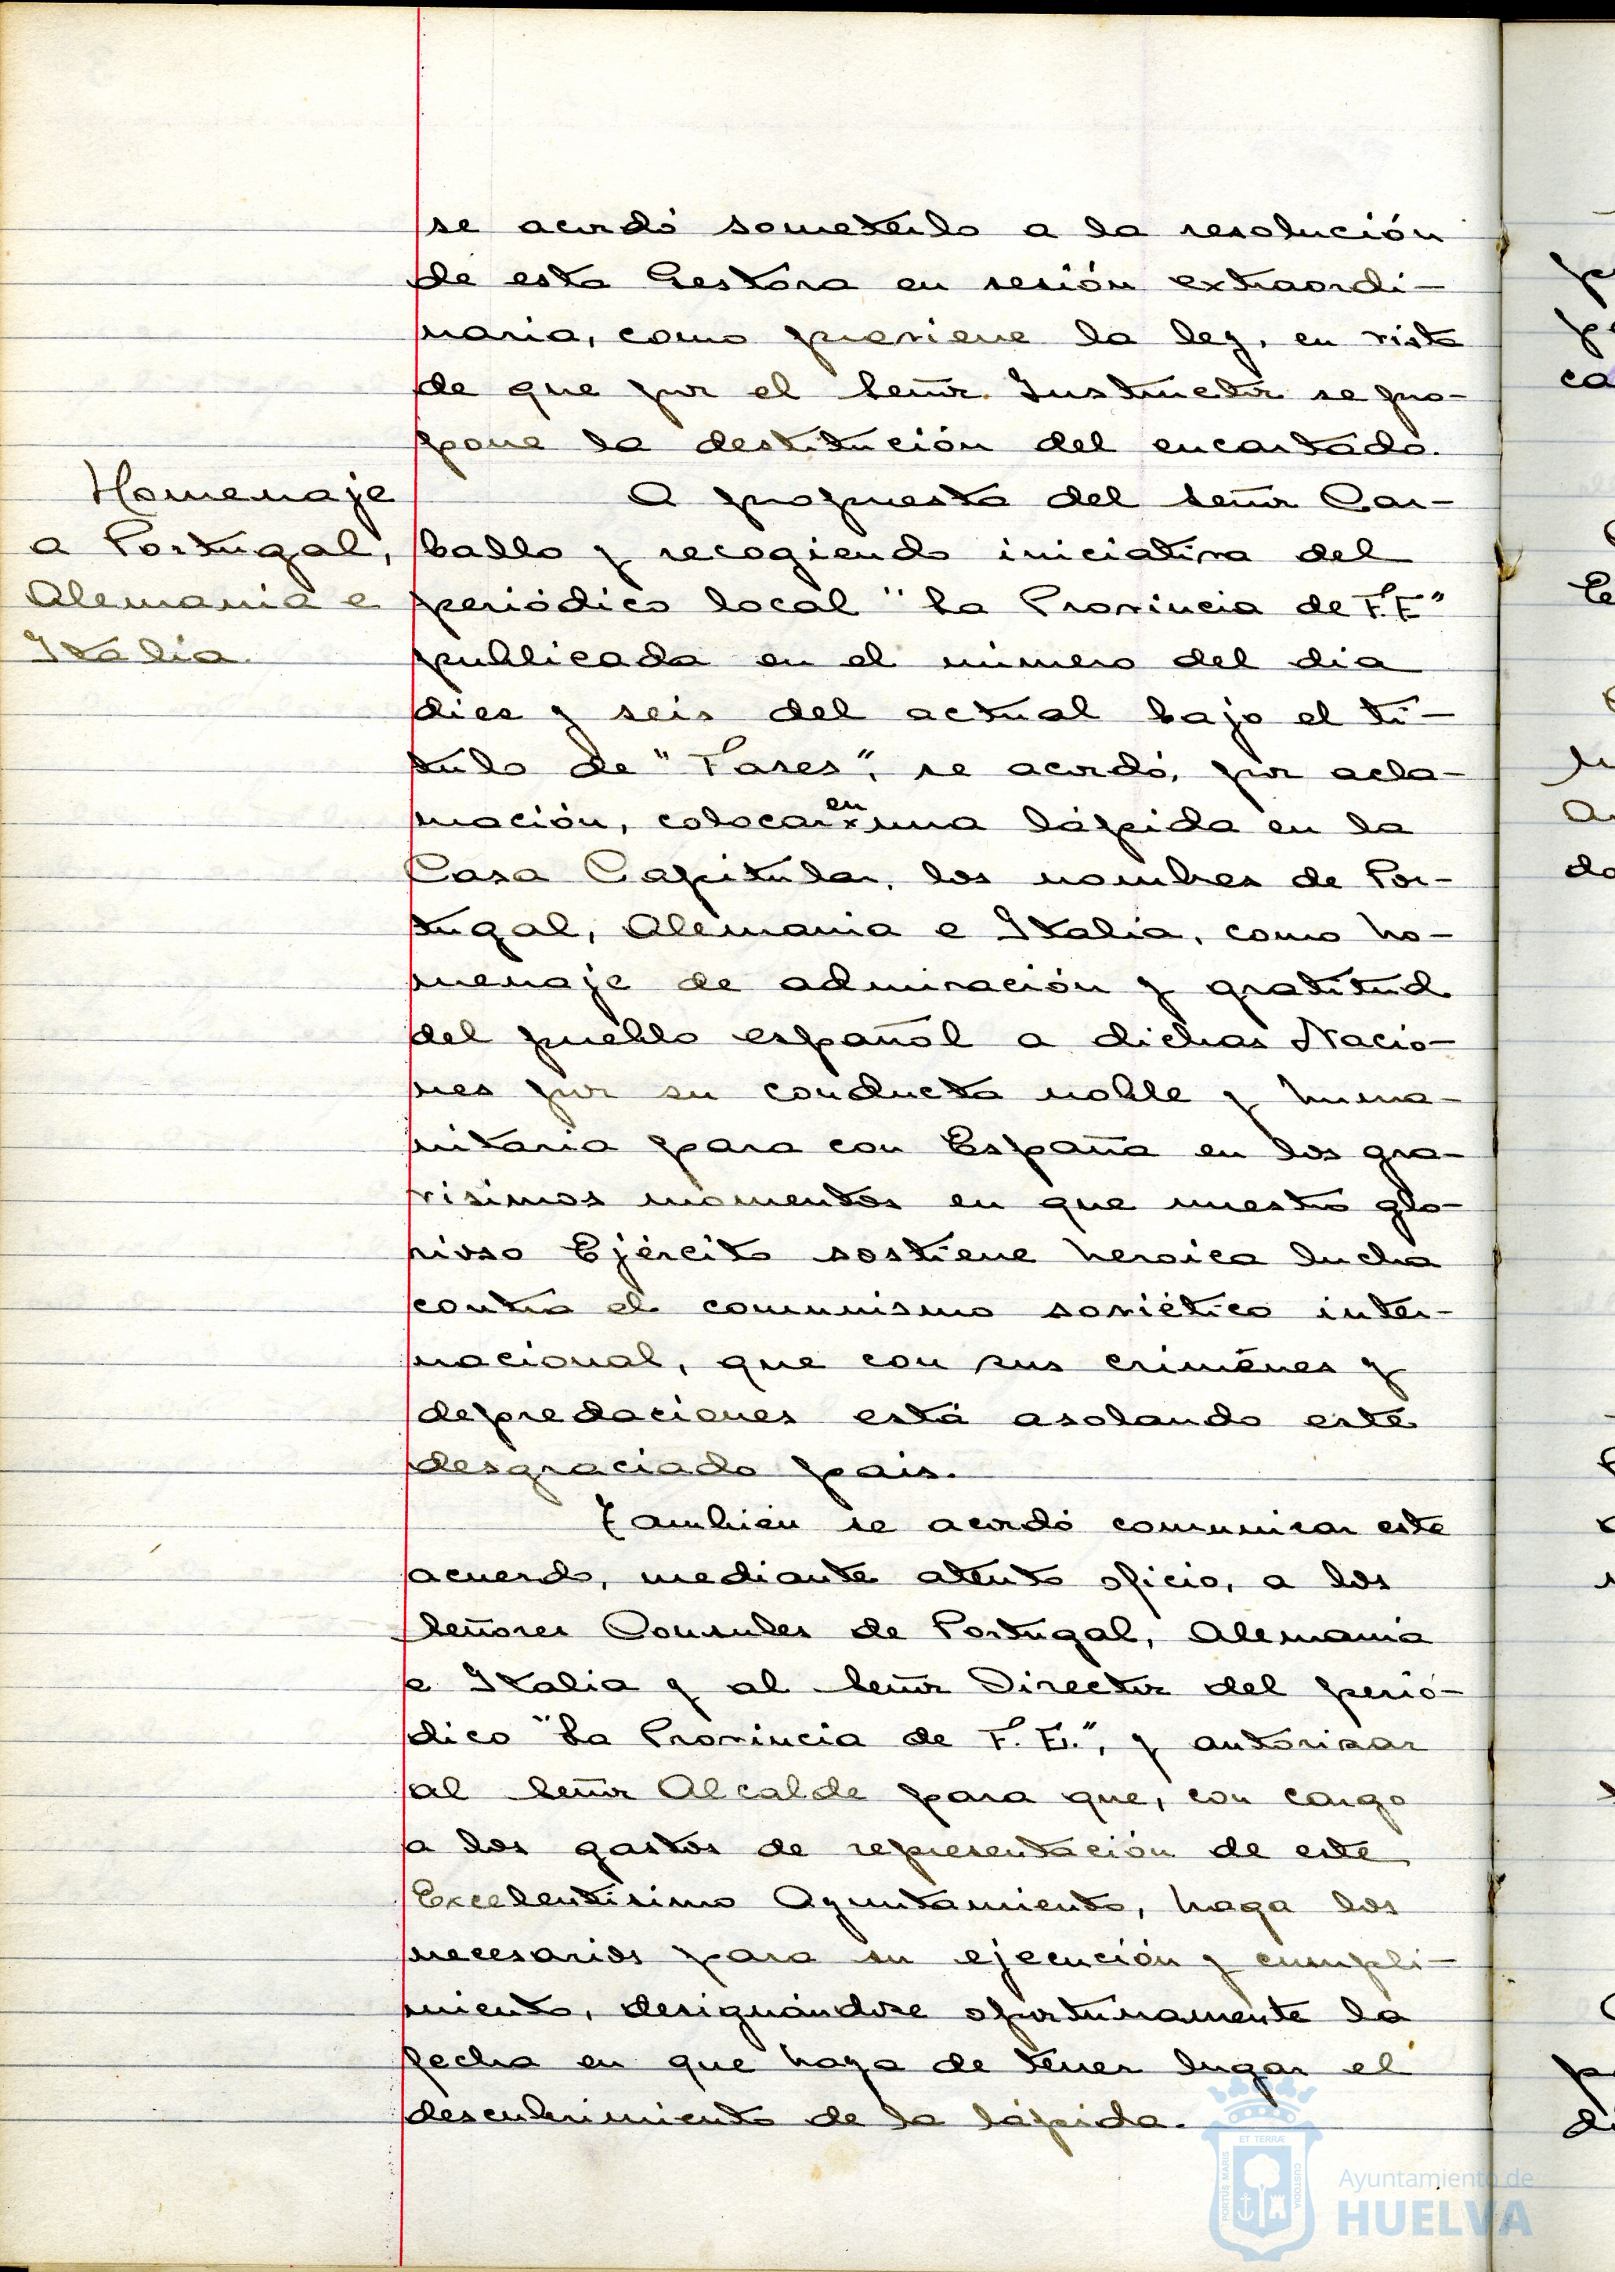 se acordó someterlo a la resolución
de esta Gestora en sesión extraordi-
naria, como previene la ley, en vista
de que por el Señor Instructor se pro-
pone la destitución del encartado.
Homenaje
a Portugal,
Alemania e
Italia.
A propuesta del Señor Car-
ballo y recogiendo iniciativa del
periódico local "La Provincia de F.E"
publicada en el número del dia
diez y seis del actual bajo el tí-
tulo de "Fases", se acordó, por acla-
mación, colocar en una lápida en la
Casa Capitular, los nombres de Por-
tugal, Alemania e Italia, como ho-
menaje de admiración y gratitud
del pueblo español a dichas Nacio-
nes por su conducta noble y huma-
nitaria para con España en los gra-
visimos momentos en que nuestro glo-
rioso Ejército sostiene heroica lucha
contra el comunismo soviético inter-
nacional, que con sus crimenes y
depredaciones está asolando este
desgraciado pais.
Tambien se acordó comunicar este
acuerdo, mediante atento oficio, a los
Señores Consules de Portugal, Alemania
e Italia y al Señor Director del perió-
dico "La Provincia de F. E.", y autorizar
al Señor Alcalde para que, con cargo
a los gastos de representación de este
Excelentisimo Ayuntamiento, haga los
necesarios para su ejecución y cumpli-
miento, designándose oportunamente la
fecha en que haya de tener lugar el
descubrimiento de la lápida.
PORTUS MARIS
ET TERRÆ
CUSTODIA
Ayuntamiento de
HUELVA